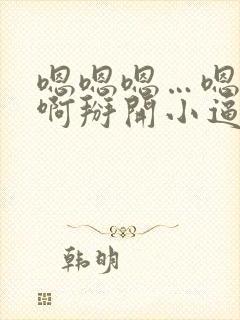 嗯嗯嗯…嗯
啊掰開小逼
韩明